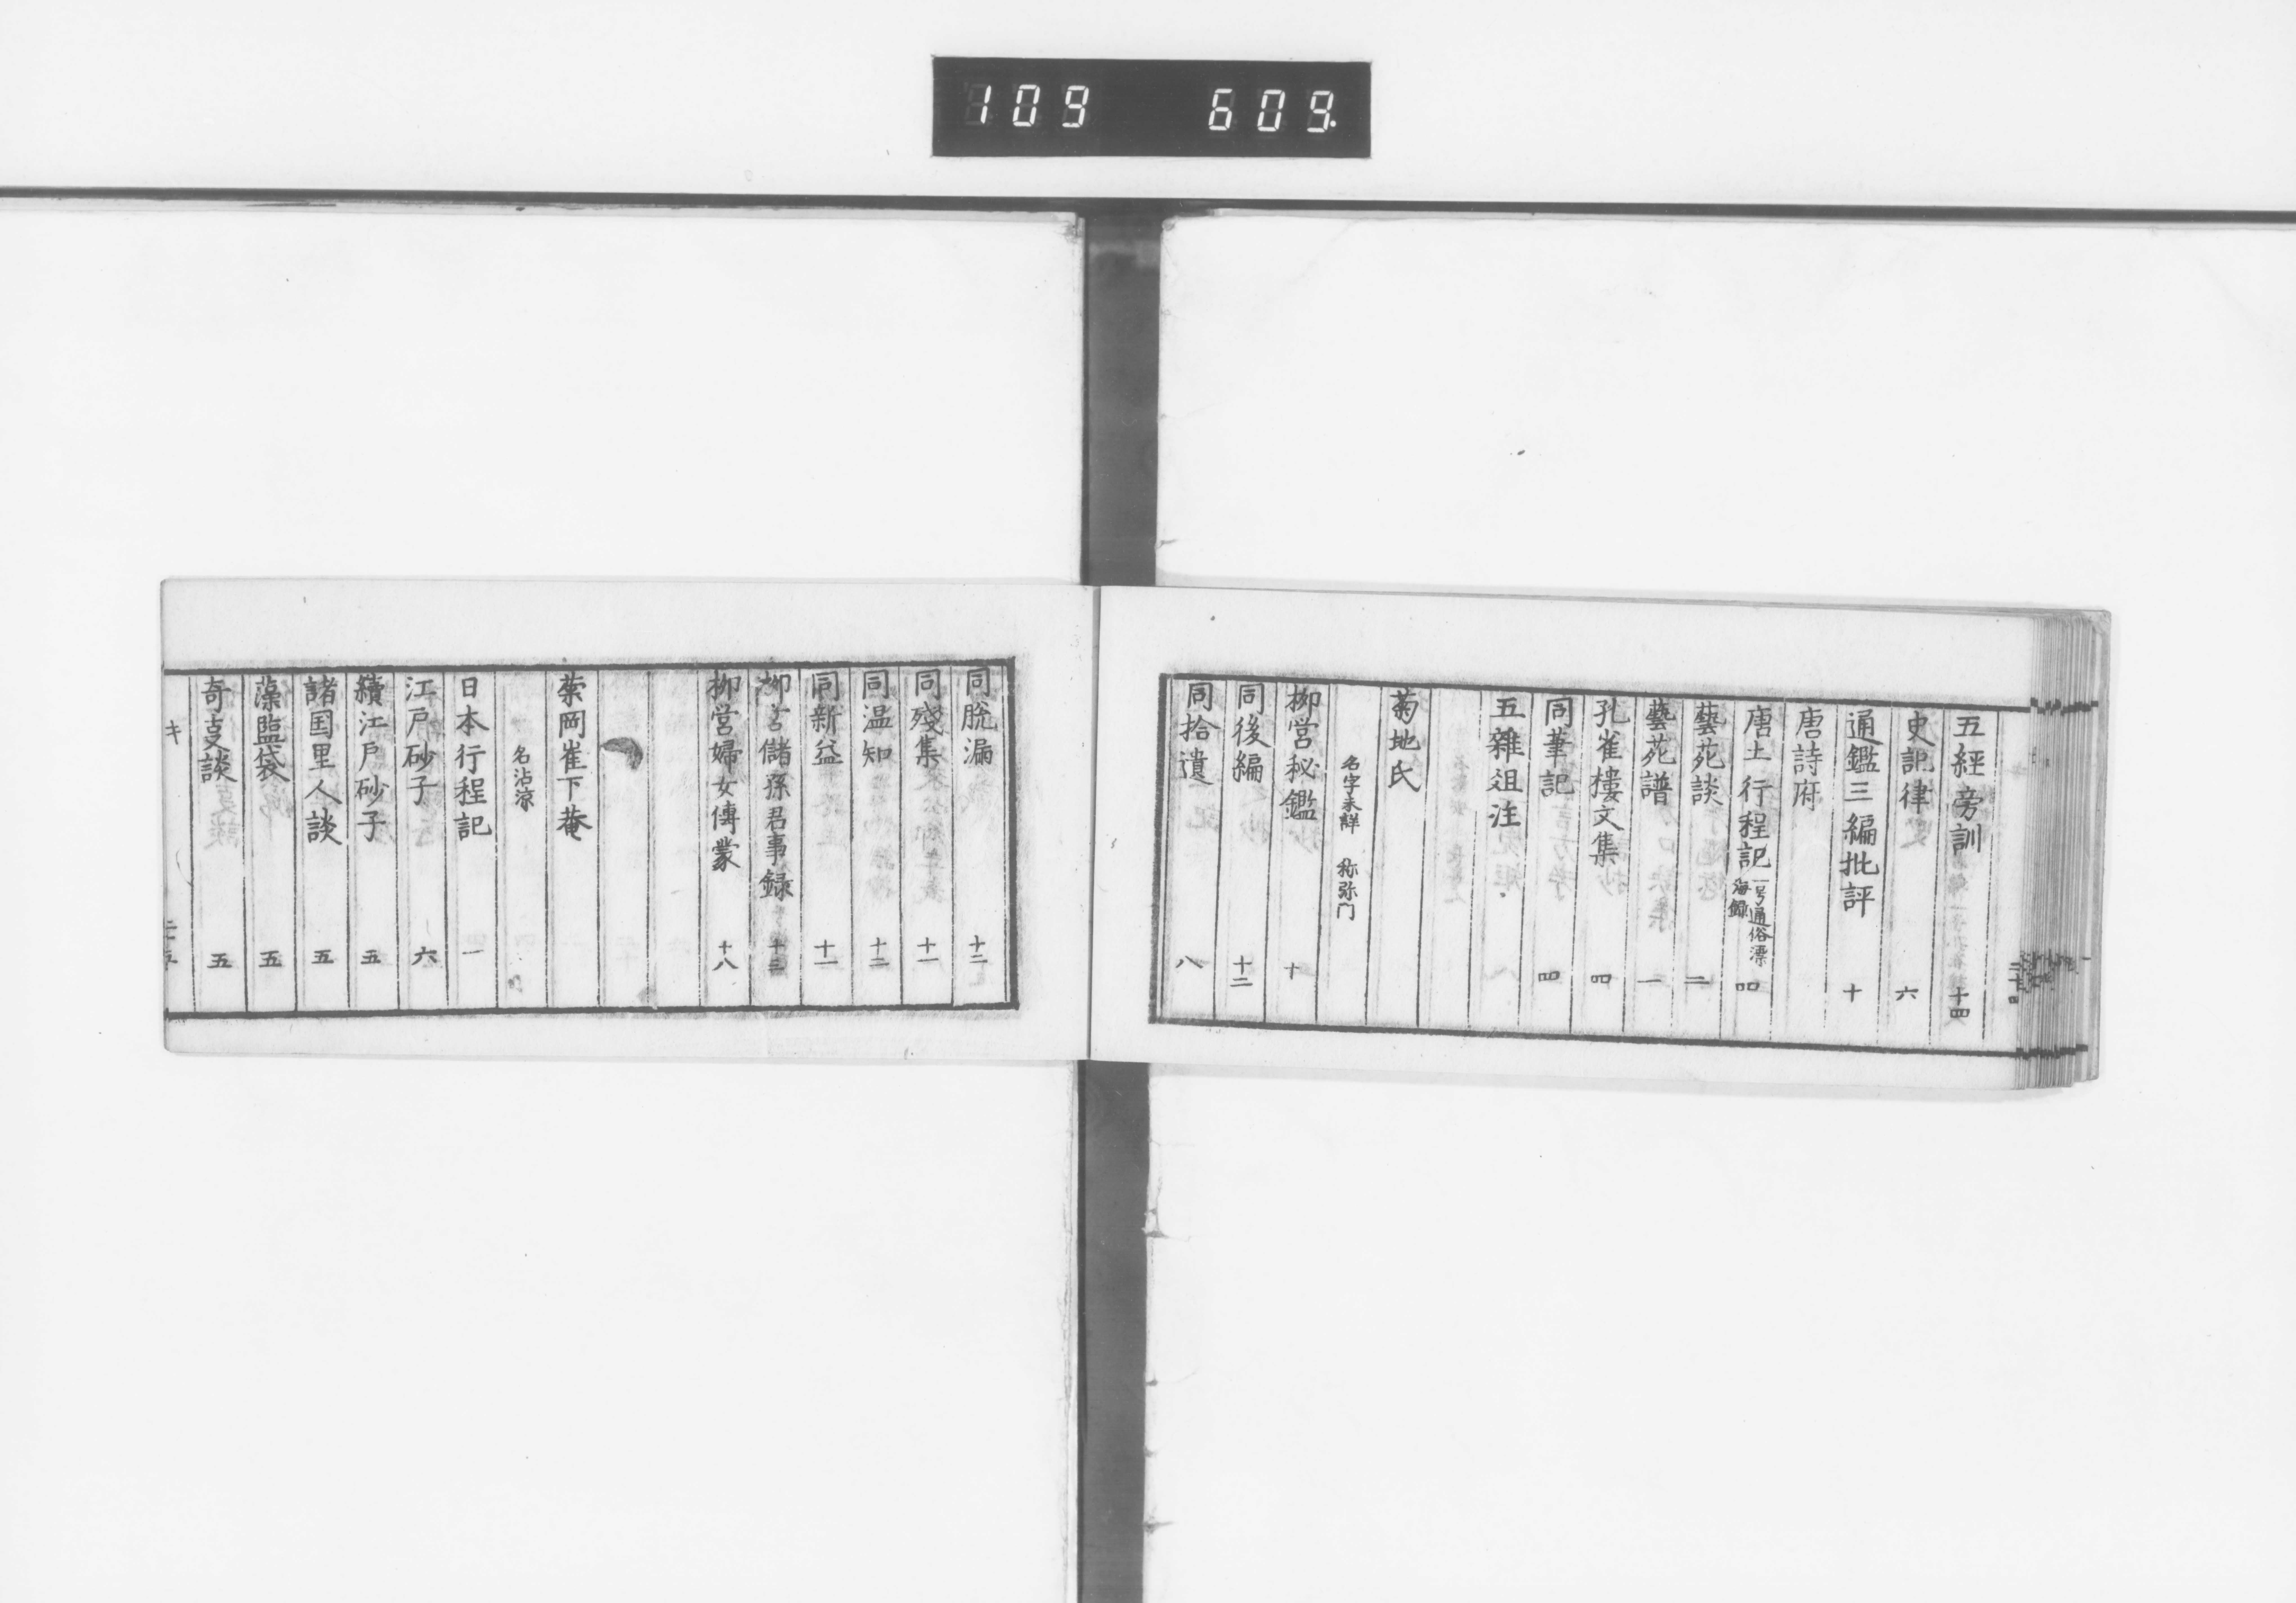 109 609.
五經旁訓 十四
史記律 六
通鑑三編批評 十
唐詩府
唐土行程記 一号通俗漂海錄 四
藝苑談 二
藝苑譜 一
孔雀樓文集 四
同筆記 四
五雜俎注
菊地氏
名字未詳 称弥门
柳営秘鑑 十
同後編 十二
同拾遺 八
同脱漏 十二
同殘集 十一
同温知 十二
同新益 十一
柳営儲孫君事録 十二
柳営婦女傳叢 十八
菊岡崔下菴
名沾涼
日本行程記 一
江戸砂子 六
續江戸砂子 五
諸国里人談 五
藻塩袋 五
奇叓談 五
キ